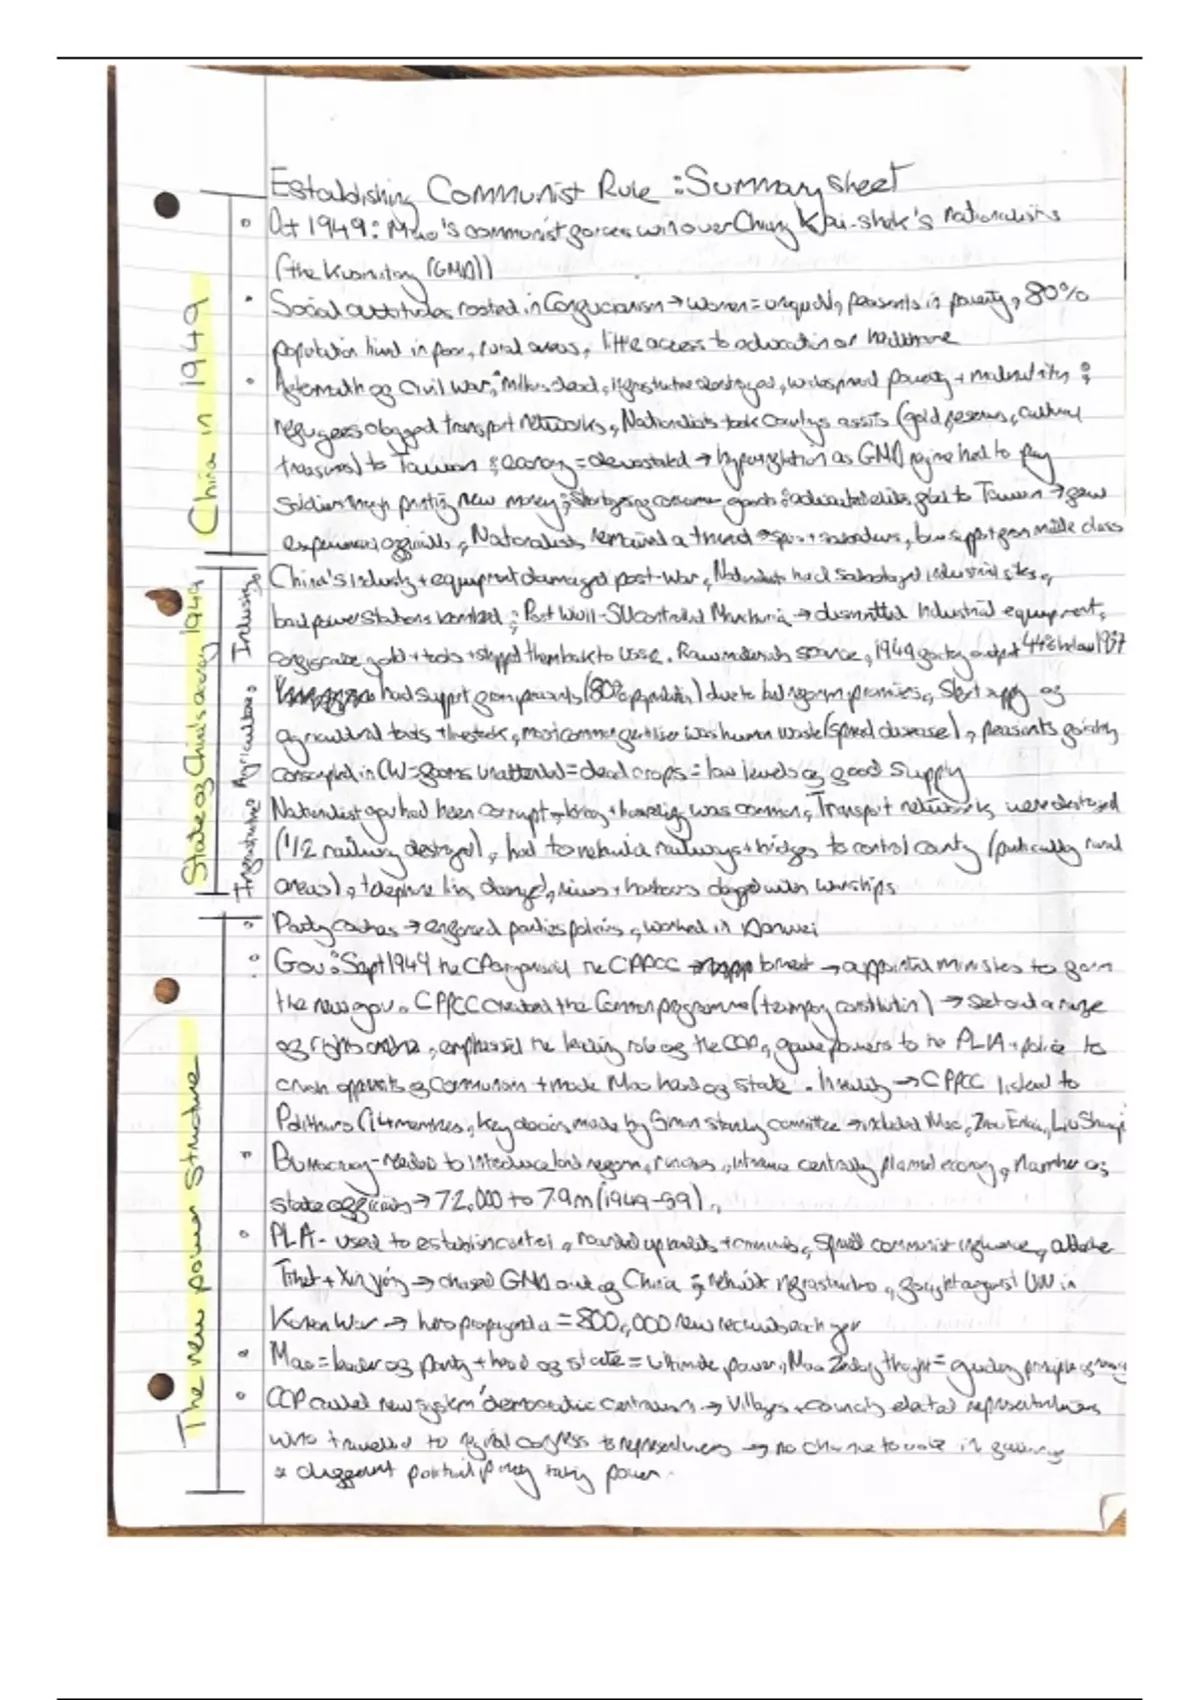 Establishing Communist Rule : Summary sheet
China in 1949
Oct 1949: Mao's communist forces win over Chiang Kai-shek's Nationalists
(the Kuomintang (GMD))
Social attitudes rooted in Confucianism → women = unequal, peasants in poverty, 80%
population lived in poor, rural areas, little access to education or healthcare
Aftermath of civil war; millions dead, infrastructure destroyed, widespread poverty + malnutrition;
refugees clogged transport networks, Nationalists took country's assets (gold, reserves, cultural
treasures) to Taiwan; economy = devastated → hyperinflation as GMD regime had to pay
soldiers through printing new money; shortages of consumer goods; educated elites fled to Taiwan → few
experienced officials, Nationalists remained a threat → spies + saboteurs, low support from middle class
State of China's economy 1949
Industry
China's industry + equipment damaged post-war, Nationalists had sabotaged industrial sites,
bad power stations bombed; Post WWII - SU controlled Manchuria → dismantled industrial equipment,
confiscate gold + tools + shipped them back to USSR. Raw materials scarce, 1949 factory output 44% below 1937
Agriculture
had support from peasants (80% population) due to land reform promises, short supply of
agricultural tools + livestock, most common fertiliser was human waste (spread disease), peasants fighting
conscripted in CW = farms unattended = dead crops = low levels of food supply
Infrastructure
Nationalist gov had been corrupt → bribery + hoarding was common, Transport networks were destroyed
(1/2 railway destroyed), had to rebuild railways + bridges to control country (particularly rural
areas), telephone lines damaged, rivers + harbours clogged with warships
The new power structure
Party cadres → enforced parties policies, worked in Danwei
Gov: Sept 1949 the CCP organised the CPPCC to meet → appointed ministers to form
the new gov. CPPCC created the Common programme (temporary constitution) → set out a range
of rights, emphasised the leading role of the CCP, gave powers to the PLA + police to
crush opponents of Communism + made Mao head of state. In reality → CPPCC listened to
Politburo (14 members, key decisions made by 5 man standing committee → included Mao, Zhou Enlai, Liu Shaoqi
Bureaucracy - needed to introduce land reform, run, introduce centrally planned economy, number of
state officials → 72,000 to 7.9m (1949-59),
PLA - used to establish control, rounded up bandits + criminals, spread communist influence, attacked
Tibet + Xinjiang → chased GMD out of China; rebuilt infrastructure, fought against UN in
Korean War → hero propaganda = 800,000 new recruits each year
Mao = leader of party + head of state = ultimate power, Mao Zedong thought = guiding principle of
CCP called new system 'democratic centralism → Villages + councils elected representatives
who travelled to regional congress to represent → no chance to vote in
a different political party taking power.